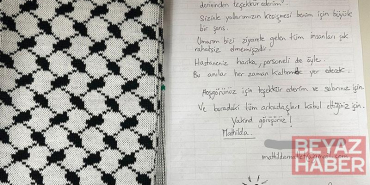 derinden teşekkür ederim!
Sizinle yollarımızın kesişmesi benim için büyük
bir şans.
Umarım bizi ziyarete gelen tüm insanları çok
rahatsız etmemişizdir.
Hastaneniz harika, personeli de öyle.
Bu anılar her zaman kalbimde yer edecek.
için teşekkür ederim ve sabrınız için.
Ve buradaki tüm arkadaşları kabul ettiğiniz için.
Yakında görüşürüz!
Mathilda
BEYAZ
HABER